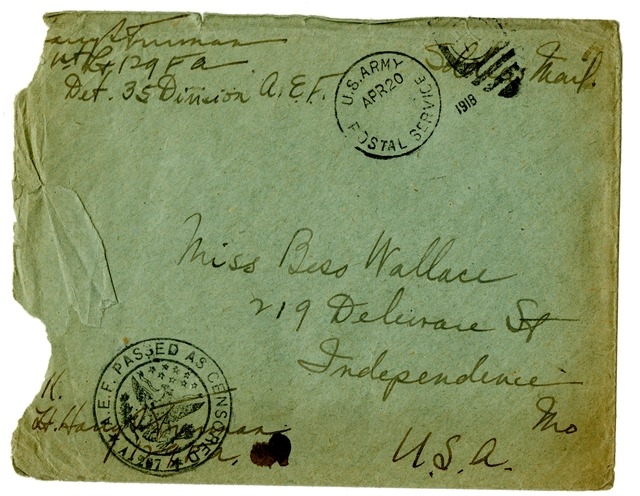 Harry S Truman
Lt Bty 129 F A
Det. 35 Division A.E.F.
Soldier Mail.
U.S. ARMY
APR 20
POSTAL SERVICE
1918
Miss Bess Wallace
219 Delaware St
Independence
Mo
U.S.A.
A.E.F. PASSED AS CENSORED
Lt. Harry S Truman